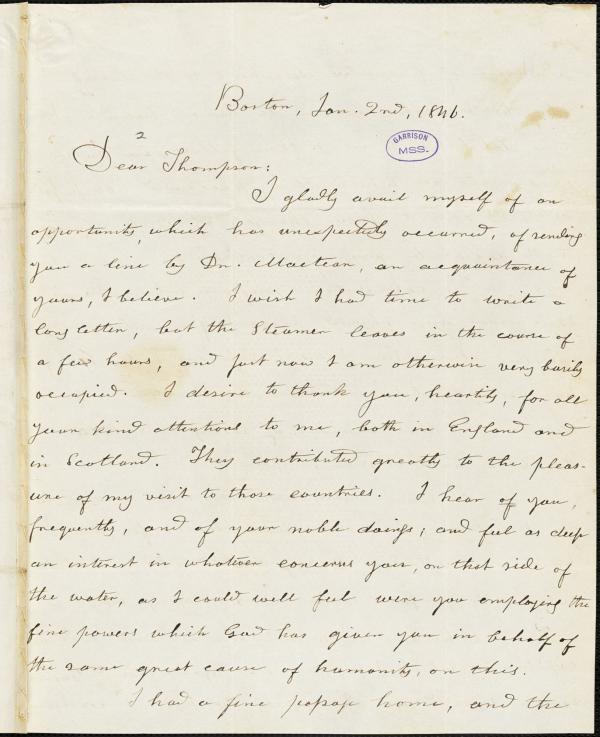 Boston, Jan. 2nd, 1846.
GARRISON
MSS.
2
Dear Thompson:
I gladly avail myself of an
opportunity, which has unexpectedly occurred, of sending
you a line by Dr. Maclean, an acquaintance of
yours, I believe. I wish I had time to write a
long letter, but the Steamer leaves in the course of
a few hours, and just now I am otherwise very busily
occupied. I desire to thank you, heartily, for all
your kind attentions to me, both in England and
in Scotland. They contributed greatly to the pleas-
ure of my visit to those countries. I hear of you,
frequently, and of your noble doings; and feel as deep
an interest in whatever concerns you, on that side of
the water, as I could well feel were you employing the
fine powers which God has given you in behalf of
the same great cause of humanity, on this.
I had a fine passage home, and the